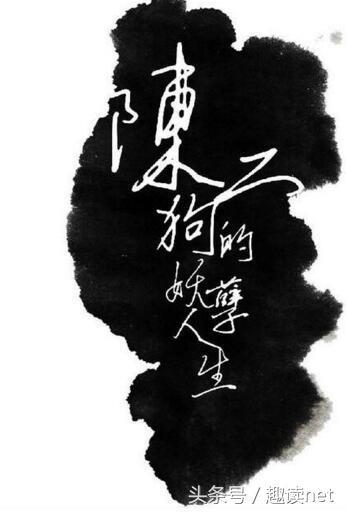 陳二
狗的
妖孽
人生
头条号 / 趣读net